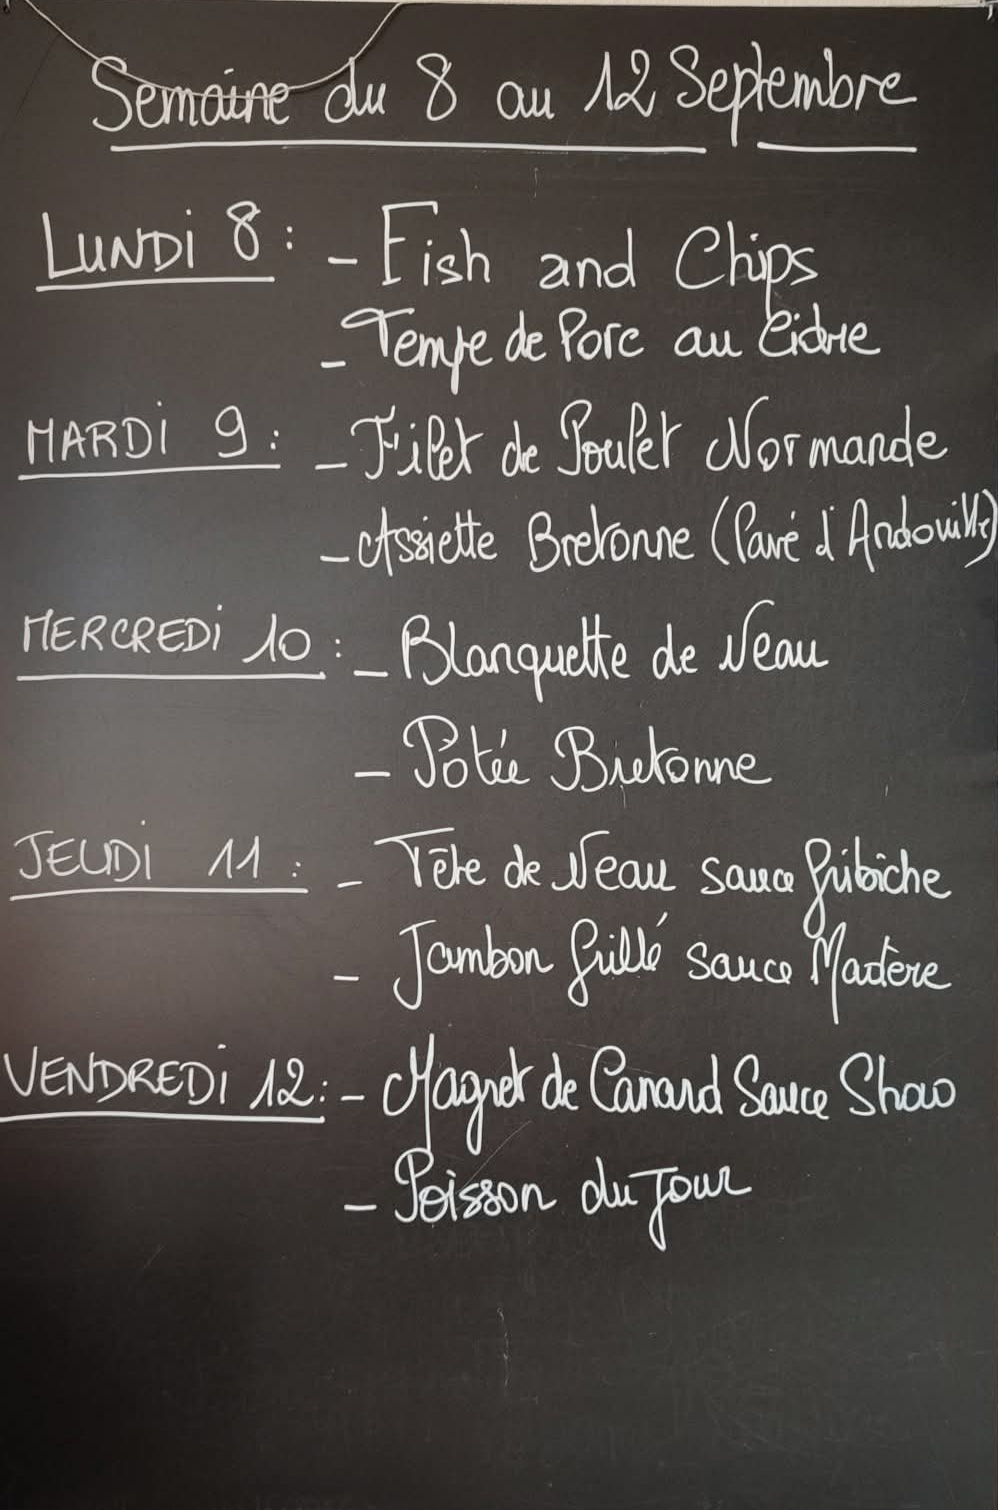 Semaine du 8 au 12 Septembre
LUNDI 8 : - Fish and Chips
- Tempe de Porc au Cidre
MARDI 9 : - Filet de Poulet Normande
- Assiette Bretonne (Pavé d'Andouille)
MERCREDI 10 : - Blanquette de Veau
- Potée Bretonne
JEUDI 11 : - Tête de Veau sauce gribiche
- Jambon grillé sauce Madère
VENDREDI 12 : - Magret de Canard Sauce Show
- Poisson du Jour